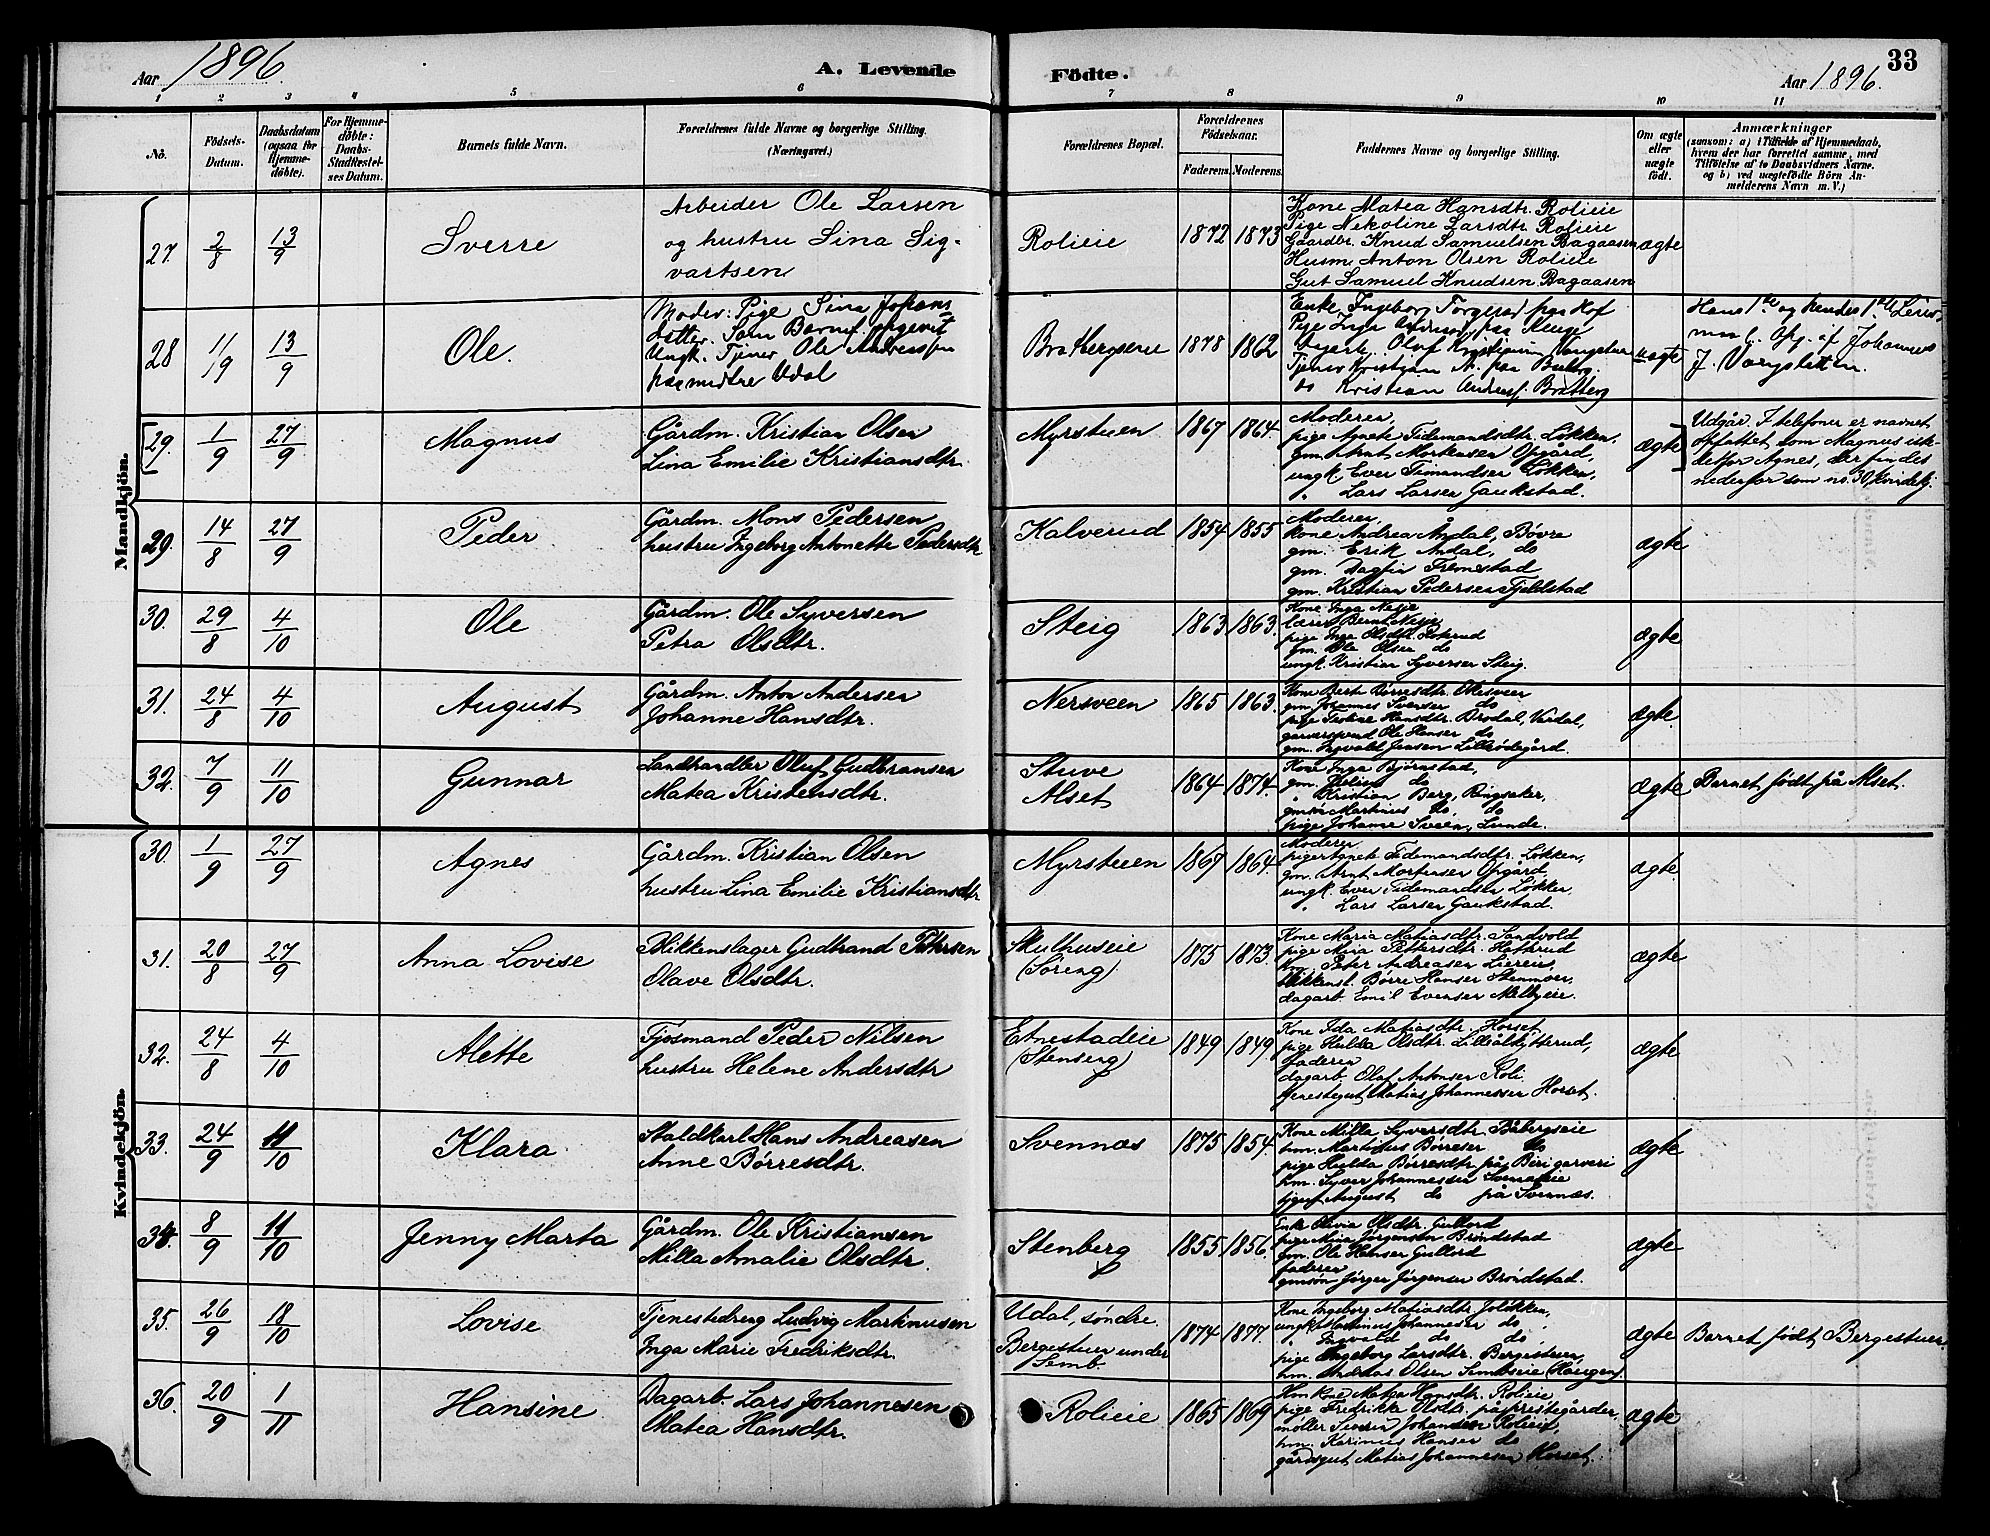 Aar 1896. A. Levende Födte. Aar 1896. 33
1 2 3 4 5 6 7 8 9 10 11
No. Födsels-Datum. Daabsdatum (ogsaa for Hjemmedöbte). For Hjemmedöbte: Daabs-Stadfæstelses Datum. Barnets fulde Navn. Forældrenes fulde Navne og borgerlige Stilling. (Næringsvei.) Forældrenes Bopæl. Forældrenes Födselsaar. Faderens. Moderens. Faddernes Navne og borgerlige Stilling. Om ægte eller uægte födt. Anmærkninger (saasom: a) i Tilfælde af Hjemmedaab, hvem der har forrettet samme, med Tilföielse af to Daabsvidners Navne. og b) ved uægtefödte Börn Anmelderens Navn m. V.)
Mandkjön.
27. 2/8 13/9 Sverre
Arbeider Ole Larsen
og hustru Lina Sig-
vartsen
Rolieie 1872 1873
Kone Matea Hansdtr. Rolieie
Pige Nikoline Larsdtr. Rolieie
Gaardbr. Knud Samuelsen Bagaasen
Husm. Anton Olsen Rolieie
Gut Samuel Knudsen Bagaasen
ægte
28 11/19 13/9 Ole.
Moder: Pige Lina Johans
datter. Som Barnef. opgevet
Ungk. Tjener Ole Andersen
paa nedre Udal
1878 1862
Enke Ingeborg paa Hof
do Kristian Andersf. Bratberg
uægte
Hans 1ste og hendes 1ste Leiers-
maal. Opg. af Johannes
J.
29. 1/9 27/9 Magnus
Gårdm. Kristian Olsen
Lina Emilie Kristiansdtr.
Myrstuen 1867 1864.
Moderen
pige Agnete Tidemandsdtr. Løkken,
gm. Arnt Mortensen Opgård,
ungk. Even Timandsen Løkken,
" Lars Larsen Gaukstad.
ægte
Udgår. I telefonen er navnet
opfattet som Magnus ist-
detfor Agnes, der findes
nedenfor som no. 30, kvindekj.
29. 14/8 27/9 Peder
Gårdm. Mons Pedersen
hustru Ingeborg Antonette Pedersdtr
Kalverud 1854 1855
Moderen,
kone Andrea Åndal, Bøvre
gm. Erik Åndal, do
gm. Dagfin Fremstad
gm. Kristian Pedersen Fjeldstad
ægte
30. 29/8 4/10 Ole
Gårdm. Ole Syversen
Petra Olsdtr.
Steig 1863 1863.
Kone Inga Nesje
lærer Bernt Nesje
pige Inga Olsdtr.
gm. Ole Olsen do
ungk. Kristian Syversen Steig.
ægte
31. 24/8 4/10 August
Gårdm. Anton Andersen
Johanne Hansdtr.
Nersveen 1865 1863.
Kone Berte Børresdtr. Olesveen
gm. Johannes Svensen do
pige Hansdtr. Brodal, Vardal,
garversvend Ole Hansen do
gm. Ingvald Jensen Lillrødegård.
ægte
32. 7/9 11/10 Gunnar
Landhandler Oluf Gudbransen
Matea Kristensdtr.
Stuve
Alset
1864 1874.
Kone Inga Bjørnstad,
gm. do
" Kristian Berg, Ringsaker,
gmsøn Martinus do, do
pige Johanne Sveen, Lunde.
ægte Barnet født på Alset.
Kvindekjön.
30. 1/9 27/9 Agnes
Gårdm. Kristian Olsen
hustru Lina Emilie Kristiansdtr.
Myrstuen 1867 1864.
Moderen
pigen Agnete Tidemandsdtr. Løkken,
gm. Arnt Mortensen Opgård
ungk. Even Tidemandsen Løkken,
" Lars Larsen Gaukstad.
ægte.
31. 20/8 27/9 Anna Lovise
Blikkenslager Gudbrand Pettersen
Olave Olsdtr.
Skulhuseie
(Søreng)
1875 1873.
Kone Maria Matiasdtr. Sandvold
pige Mina Pettersdtr. Hatterud
hm. Peter Andreasen Liereie,
blikkensl. Børre Hansen Stenmoen,
dagarb. Emil Evensen Melbyeie.
ægte
32. 24/8 4/10 Alette
Fjøsmand Peder Nilsen
hustru Helene Andersdtr
Etnestadeie
(Stenberg)
1849 1849.
Kone Ida Matiasdtr. Horset,
pige Hulda Olsdtr.
Faderen
dagarb. Olaf Antonsen Roli.
tjenestegut Matias Johannessen Horset.
ægte
33. 24/9 11/10 Klara
Staldkarl Hans Andreasen
Anne Børresdtr.
Svennæs 1875 1854.
Kone Milla Syversdtr. Båbergseie
hm. Martinus Børresen do
pige Hulda Børresdtr. på Biri garveri
hm. Syver Johannessen
tjgut August do på Svennæs.
ægte
34. 8/9 11/10 Jenny Marta
Gårdm. Ole Kristiansen
Milla Amalie Olsdtr.
Stenberg 1855 1856.
Enke Olivia Olsdtr. Gullord
pige Mina Jørgensdtr. Brøndstad
gm. Ole Hansen Gullord
faderen
gmsøn Jørgen Jørgensen Brøndstad.
ægte
35. 26/9 18/10 Lovise
Tjenestedreng Ludvig Martinusen
Inga Marie Fredriksdtr.
Udal, søndre.
Bergestuen under
Semb.
1874 1877.
Kone Ingeborg Matiasdtr. Joløkken,
ungk. Martinus Johannesen do,
" Ingvald do do,
pige Ingeborg Larsdtr. Bergestuen,
hm. Andreas Olsen Sembseie (Haugen).
ægte Barnet født Bergestuen
36. 20/9 1/11 Hansine
Dagarb. Lars Johannesen
Matea Hansdtr.
Rolieie 1865 1869
Hm kone Matea Hansdtr. Rolieie
pige Fredrikke Olsdtr. på prestegården,
møller Johansen Rolieie,
hm. Karinus Hansen do
gårdsgut Matias Johannesen Horset.
ægte